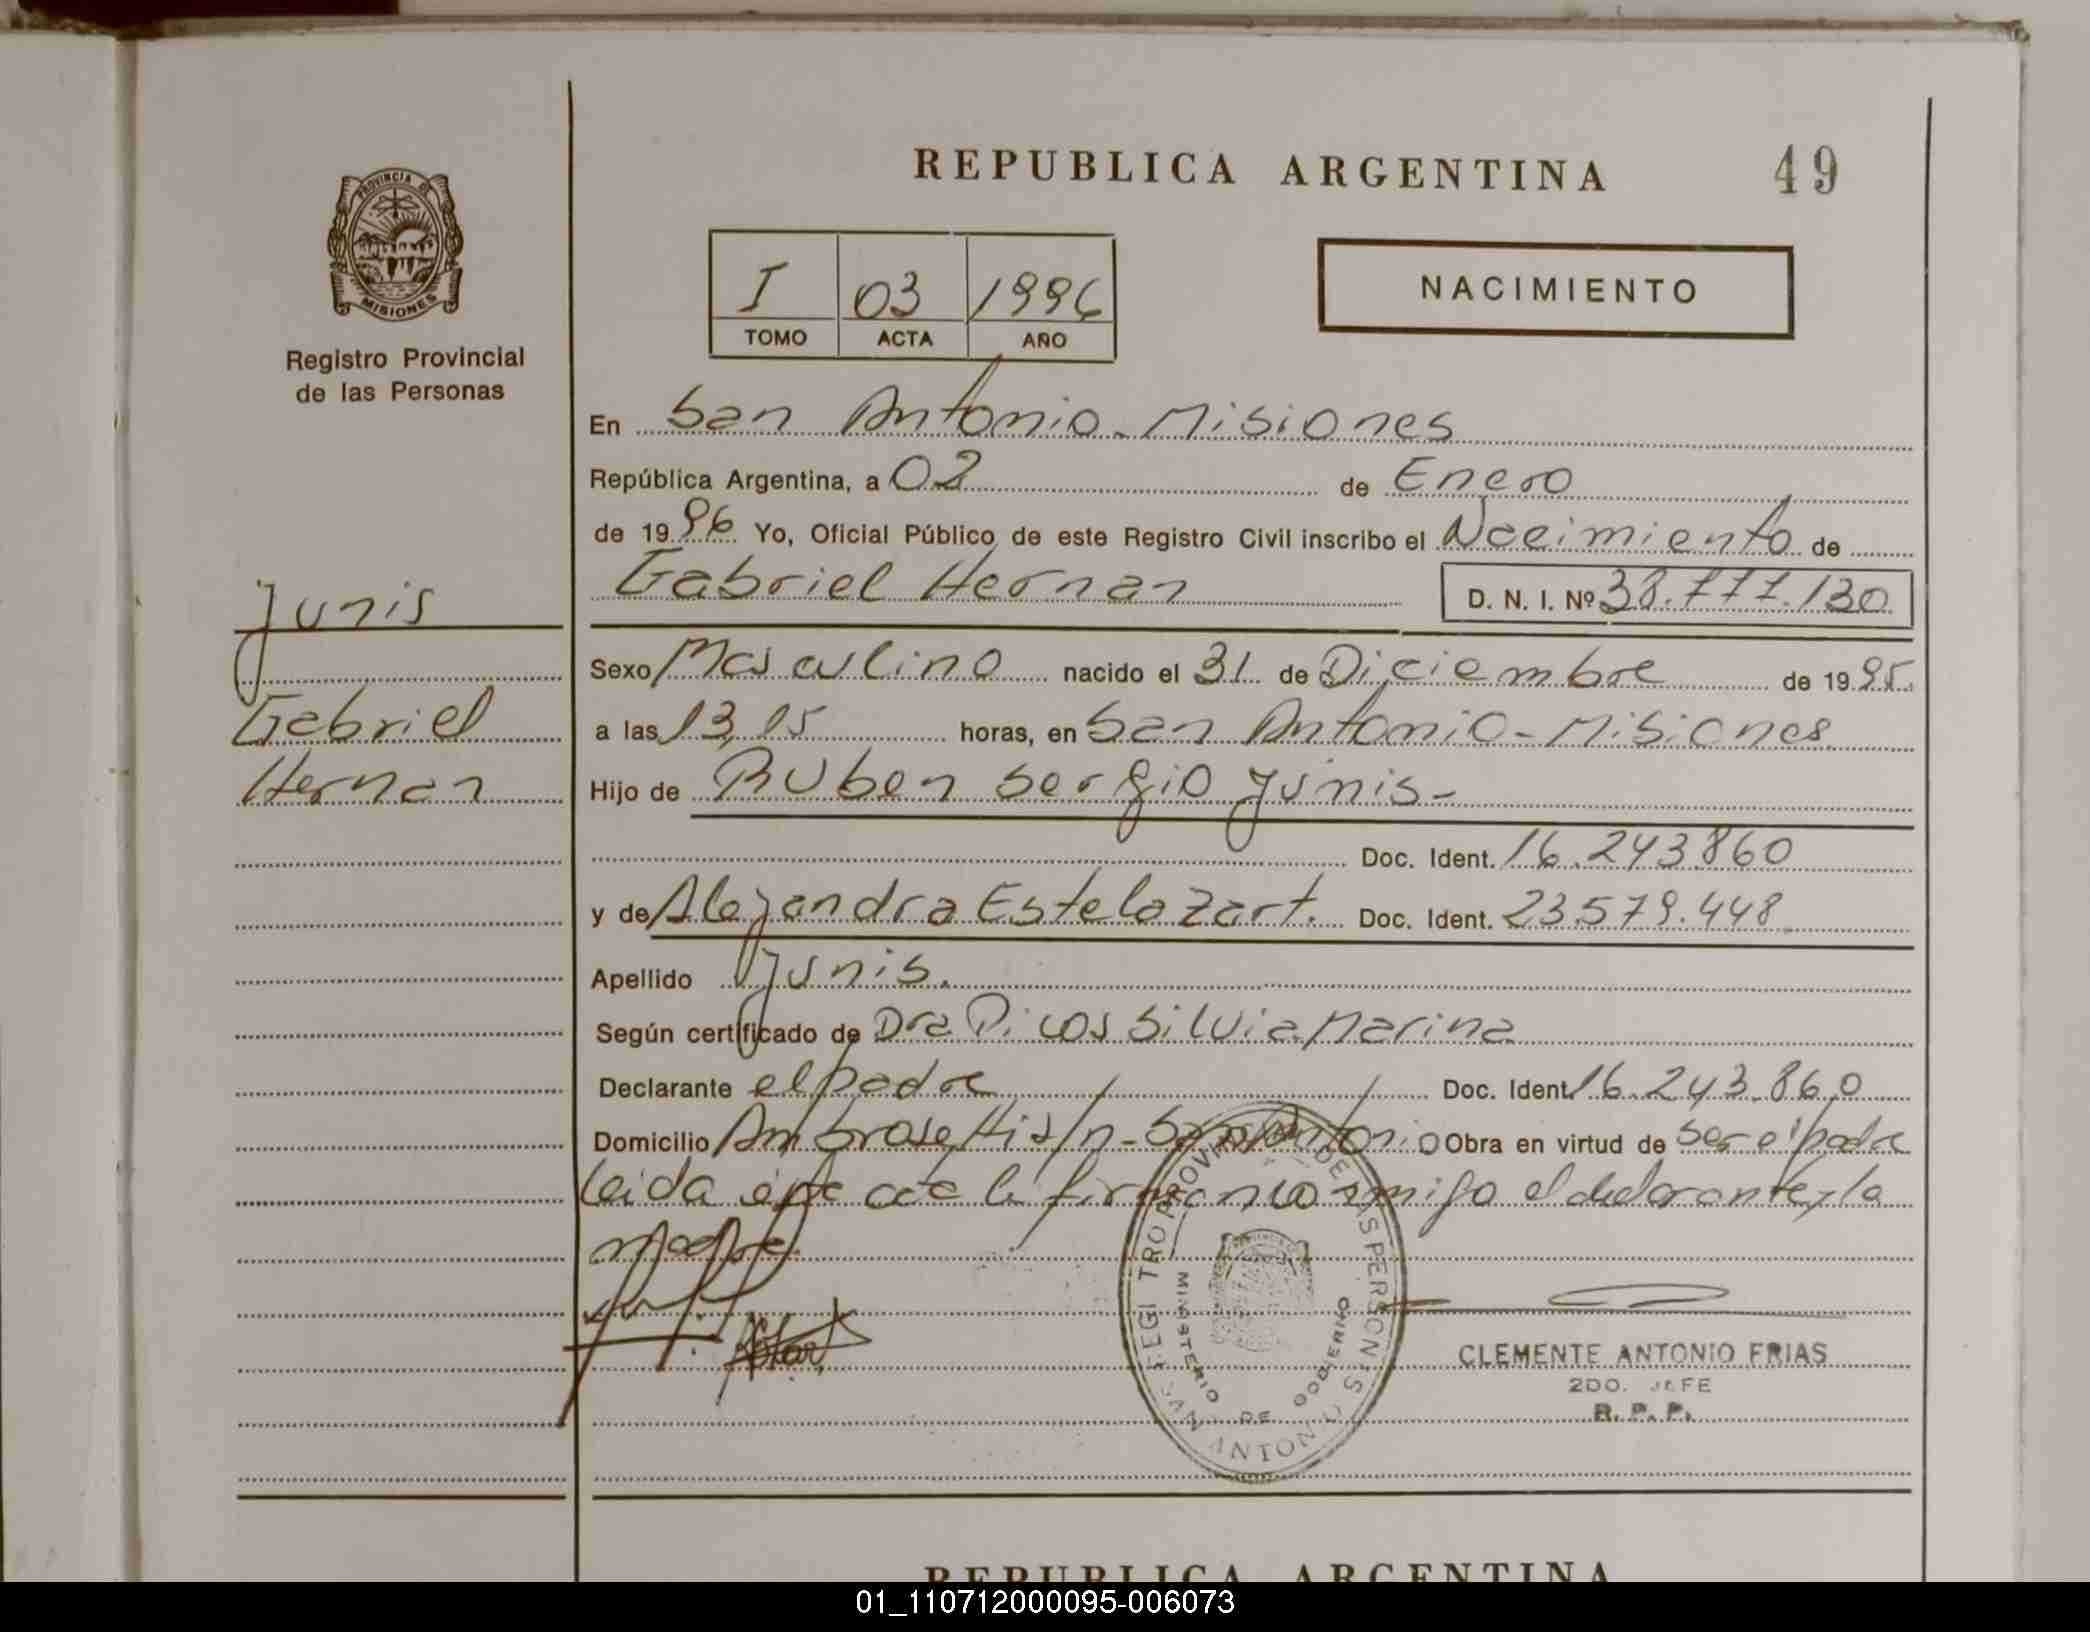 REPUBLICA ARGENTINA
49
PROVINCIA DE
MISIONES
Registro Provincial
de las Personas
I 03 1996
TOMO ACTA AÑO
NACIMIENTO
En San Antonio - Misiones
República Argentina, a 02 de Enero
de 1996 Yo, Oficial Público de este Registro Civil inscribo el Nacimiento de
Gabriel Hernan D. N. I. Nº 38.777.130
Junis
Sexo Masculino nacido el 31 de Diciembre de 1995.
Gabriel
a las 13,15 horas, en San Antonio - Misiones
Hernan
Hijo de Ruben Sergio Junis -
Doc. Ident. 16.243.860
y de Alejandra Estela Zart. Doc. Ident. 23.579.448
Apellido Junis.
Según certificado de Dra. Picos Silvia Marina
Declarante el padre Doc. Ident. 16.243.860
Domicilio Ambrosetti s/n - San Antonio Obra en virtud de ser el padre
Leida el firman conmigo el declarante y la
madre.
REGISTRO PROVINCIAL DE LAS PERSONAS
MINISTERIO DE GOBIERNO
SAN ANTONIO
CLEMENTE ANTONIO FRIAS
2DO. JEFE
R. P. P.
REPUBLICA ARGENTINA
01_110712000095-006073